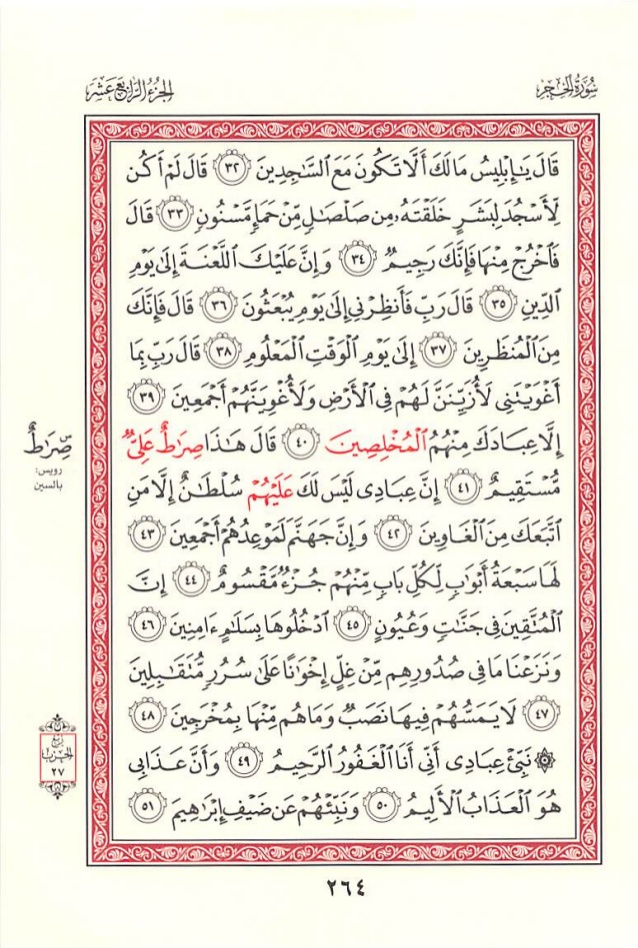 سُورَةُ الحِجْرِ
الجُزْءُ الرَّابِعَ عَشَرَ
قَالَ يَٰٓإِبۡلِيسُ مَا لَكَ أَلَّا تَكُونَ مَعَ ٱلسَّٰجِدِينَ ٣٢ قَالَ لَمۡ أَكُن
لِّأَسۡجُدَ لِبَشَرٍ خَلَقۡتَهُۥ مِن صَلۡصَٰلٖ مِّنۡ حَمَإٖ مَّسۡنُونٖ ٣٣ قَالَ
فَٱخۡرُجۡ مِنۡهَا فَإِنَّكَ رَجِيمٞ ٣٤ وَإِنَّ عَلَيۡكَ ٱللَّعۡنَةَ إِلَىٰ يَوۡمِ
ٱلدِّينِ ٣٥ قَالَ رَبِّ فَأَنظِرۡنِي إِلَىٰ يَوۡمِ يُبۡعَثُونَ ٣٦ قَالَ فَإِنَّكَ
مِنَ ٱلۡمُنظَرِينَ ٣٧ إِلَىٰ يَوۡمِ ٱلۡوَقۡتِ ٱلۡمَعۡلُومِ ٣٨ قَالَ رَبِّ بِمَآ
أَغۡوَيۡتَنِي لَأُزَيِّنَنَّ لَهُمۡ فِي ٱلۡأَرۡضِ وَلَأُغۡوِيَنَّهُمۡ أَجۡمَعِينَ ٣٩
إِلَّا عِبَادَكَ مِنۡهُمُ ٱلۡمُخۡلِصِينَ ٤٠ قَالَ هَٰذَا صِرَٰطٌ عَلِيّٞ
مُّسۡتَقِيمٌ ٤١ إِنَّ عِبَادِي لَيۡسَ لَكَ عَلَيۡهُمۡ سُلۡطَٰنٌ إِلَّا مَنِ
ٱتَّبَعَكَ مِنَ ٱلۡغَاوِينَ ٤٢ وَإِنَّ جَهَنَّمَ لَمَوۡعِدُهُمۡ أَجۡمَعِينَ ٤٣
لَهَا سَبۡعَةُ أَبۡوَٰبٖ لِّكُلِّ بَابٖ مِّنۡهُمۡ جُزۡءٞ مَّقۡسُومٌ ٤٤ إِنَّ
ٱلۡمُتَّقِينَ فِي جَنَّٰتٖ وَعُيُونٍ ٤٥ ٱدۡخُلُوهَا بِسَلَٰمٍ ءَامِنِينَ ٤٦
وَنَزَعۡنَا مَا فِي صُدُورِهِم مِّنۡ غِلٍّ إِخۡوَٰنًا عَلَىٰ سُرُرٖ مُّتَقَٰبِلِينَ
٤٧ لَا يَمَسُّهُمۡ فِيهَا نَصَبٞ وَمَا هُم مِّنۡهَا بِمُخۡرَجِينَ ٤٨
۞ نَبِّئۡ عِبَادِي أَنِّي أَنَا ٱلۡغَفُورُ ٱلرَّحِيمُ ٤٩ وَأَنَّ عَذَابِي
هُوَ ٱلۡعَذَابُ ٱلۡأَلِيمُ ٥٠ وَنَبِّئۡهُمۡ عَن ضَيۡفِ إِبۡرَٰهِيمَ ٥١
صِّرَٰطٌ
رويس:
بالسين
ربع
الحزب
٢٧
٢٦٤